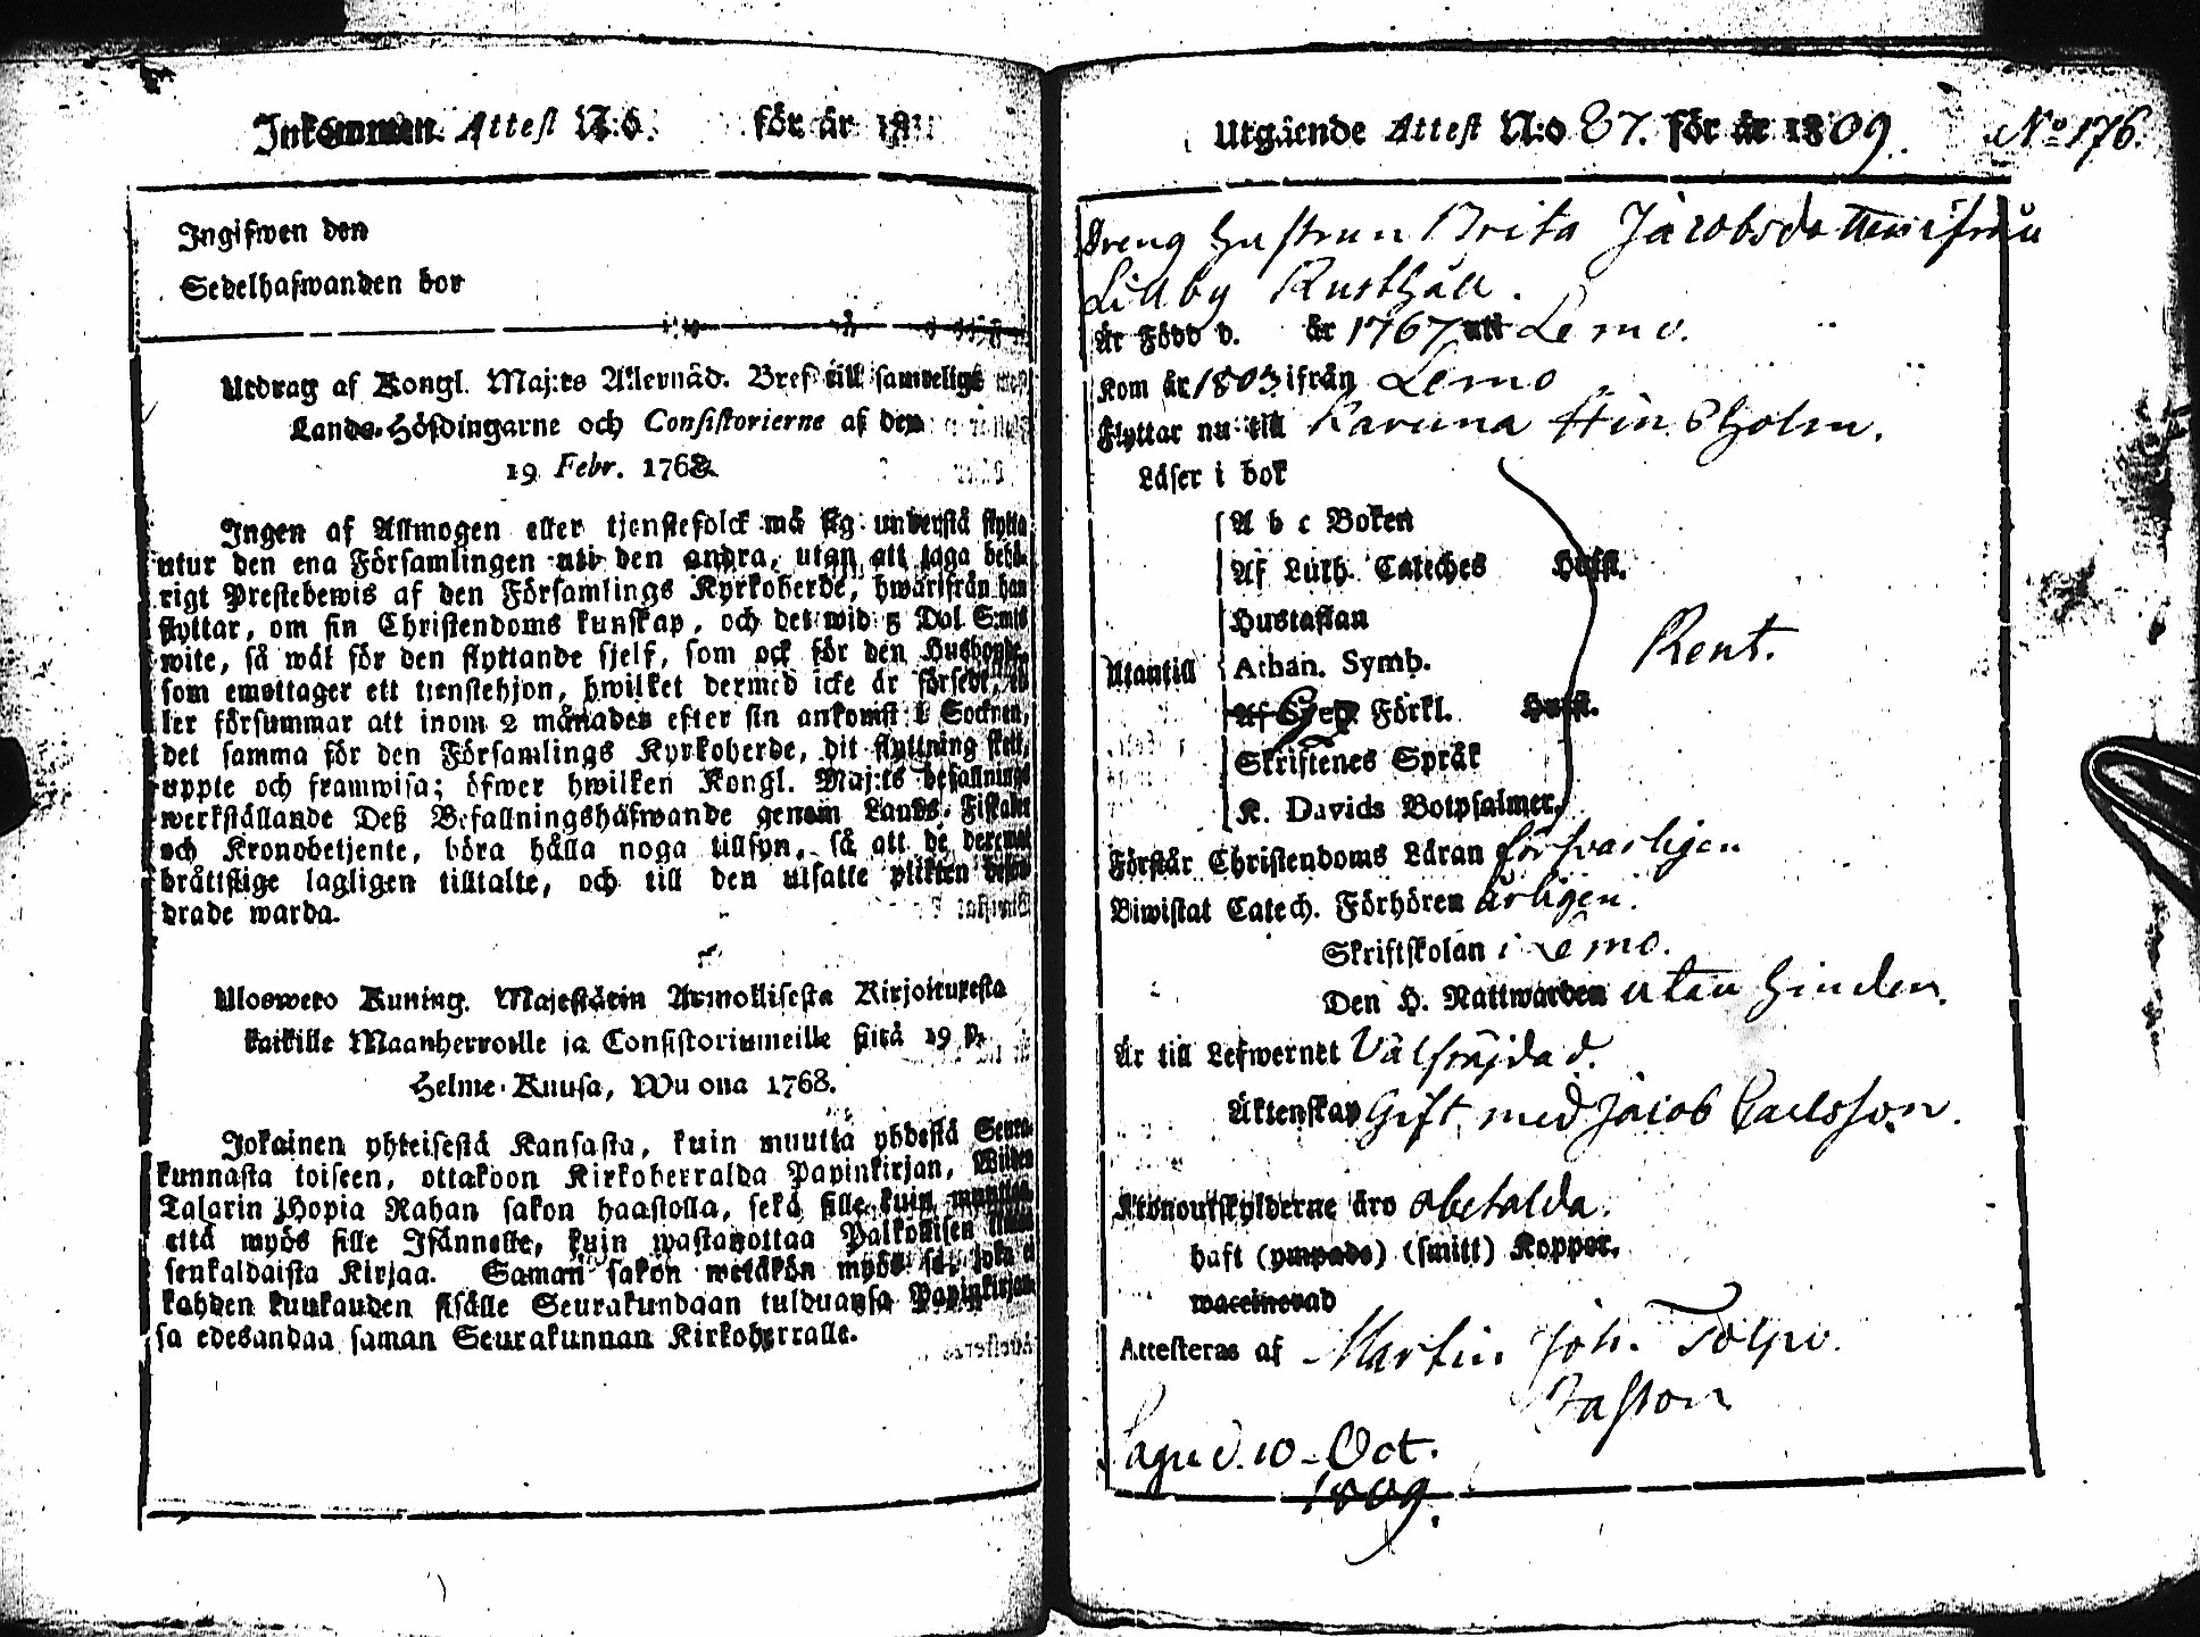 Inkommen Attest N:o för år 18
Ingifwen den
Sedelhafwanden bor
Utdrag af Kongl. Maj:ts Allernåd. Bref till samtelige
Lands-Höfdingarne och Consistorierne af den
19 Febr. 1768.
Ingen af Allmogen eller tjenstefolck må sig understå flytta
utur den ena Församlingen uti den andra, utan att taga behö-
rigt Prestebewis af den Församlings Kyrkoherde, hwarifrån han
flyttar, om sin Christendoms kunskap, och det wid 5 Dal S:mts
wite, så wäl för den flyttande sjelf, som ock för den Husbonde,
som emottager ett tienstehjon, hwilket dermed icke är försedt, el-
ler försummar att inom 2 månader efter sin ankomst i Socknen,
det samma för den Församlings Kyrkoherde, dit flyttning skett,
uppte och framwisa; öfwer hwilken Kongl. Maj:ts befallnings
werkställande Deß Befallningshafwande genom Lands-Fiskaler
och Kronobetjente, böra hålla noga tillsyn, så att de deremot
bråttslige lagligen tilltalte, och till den utsatte plikten befor-
drade warda.
Ulosweto Kuning. Majestätin Armollisesta Kirjoituxesta
kaikille Maanherroille ja Consistoriumeille siitä 19 p.
Helme-Kuusa, Wuonna 1768.
Jokainen yhteisestä Kansasta, kuin muutta yhdestä Seura-
kunnasta toiseen, ottakoon Kirkoherralda Papinkirjan, Wiiden
Talarin Hopia Rahan sakon haastolla, sekä sille kuin muuttaa,
että myös sille Isännelle, kuin wastanottaa Palkollisen ilman
senkaldaista Kirjaa. Saman sakon wetäkön myös se, joka ei
kahden kuukauden sisälle Seurakundaan tulduansa Papinkirjan-
sa edesandaa saman Seurakunnan Kirkoherralle.
Utgående Attest N:o 87. för år 1809. No 176.
Dreng hustrun Brita Jacobsdotter ifrån
Lillby Rusthåll.
Är Född d. år 1767 uti Lemo.
Kom år 1803 ifrån Lemo
Flyttar nu till Karuna Hinsholm.
Läser i bok
A b c Boken
Af Luth. Cateches Huffl.
Hustaflan
Utantill Athan. Symb. Rent.
Af Förkl. Huffl.
Skriftenes Språk
K. Davids Botpsalmer.
Förstår Christendoms Läran försvarligen
Biwistat Catech. Förhören årligen.
Skriftskolan i Lemo.
Den H. Nattwarden utan hinder.
Är till Lefwernet Välfräjdad.
Äktenskap Gift med Jacob Carlsson.
Kronoutskylderne äro obetalda.
haft (ympade) (smitt) Koppor.
waccinerad
Attesteras af Martin Joh. Tolpo.
Pastor
Sagu d. 10 Oct.
1809.